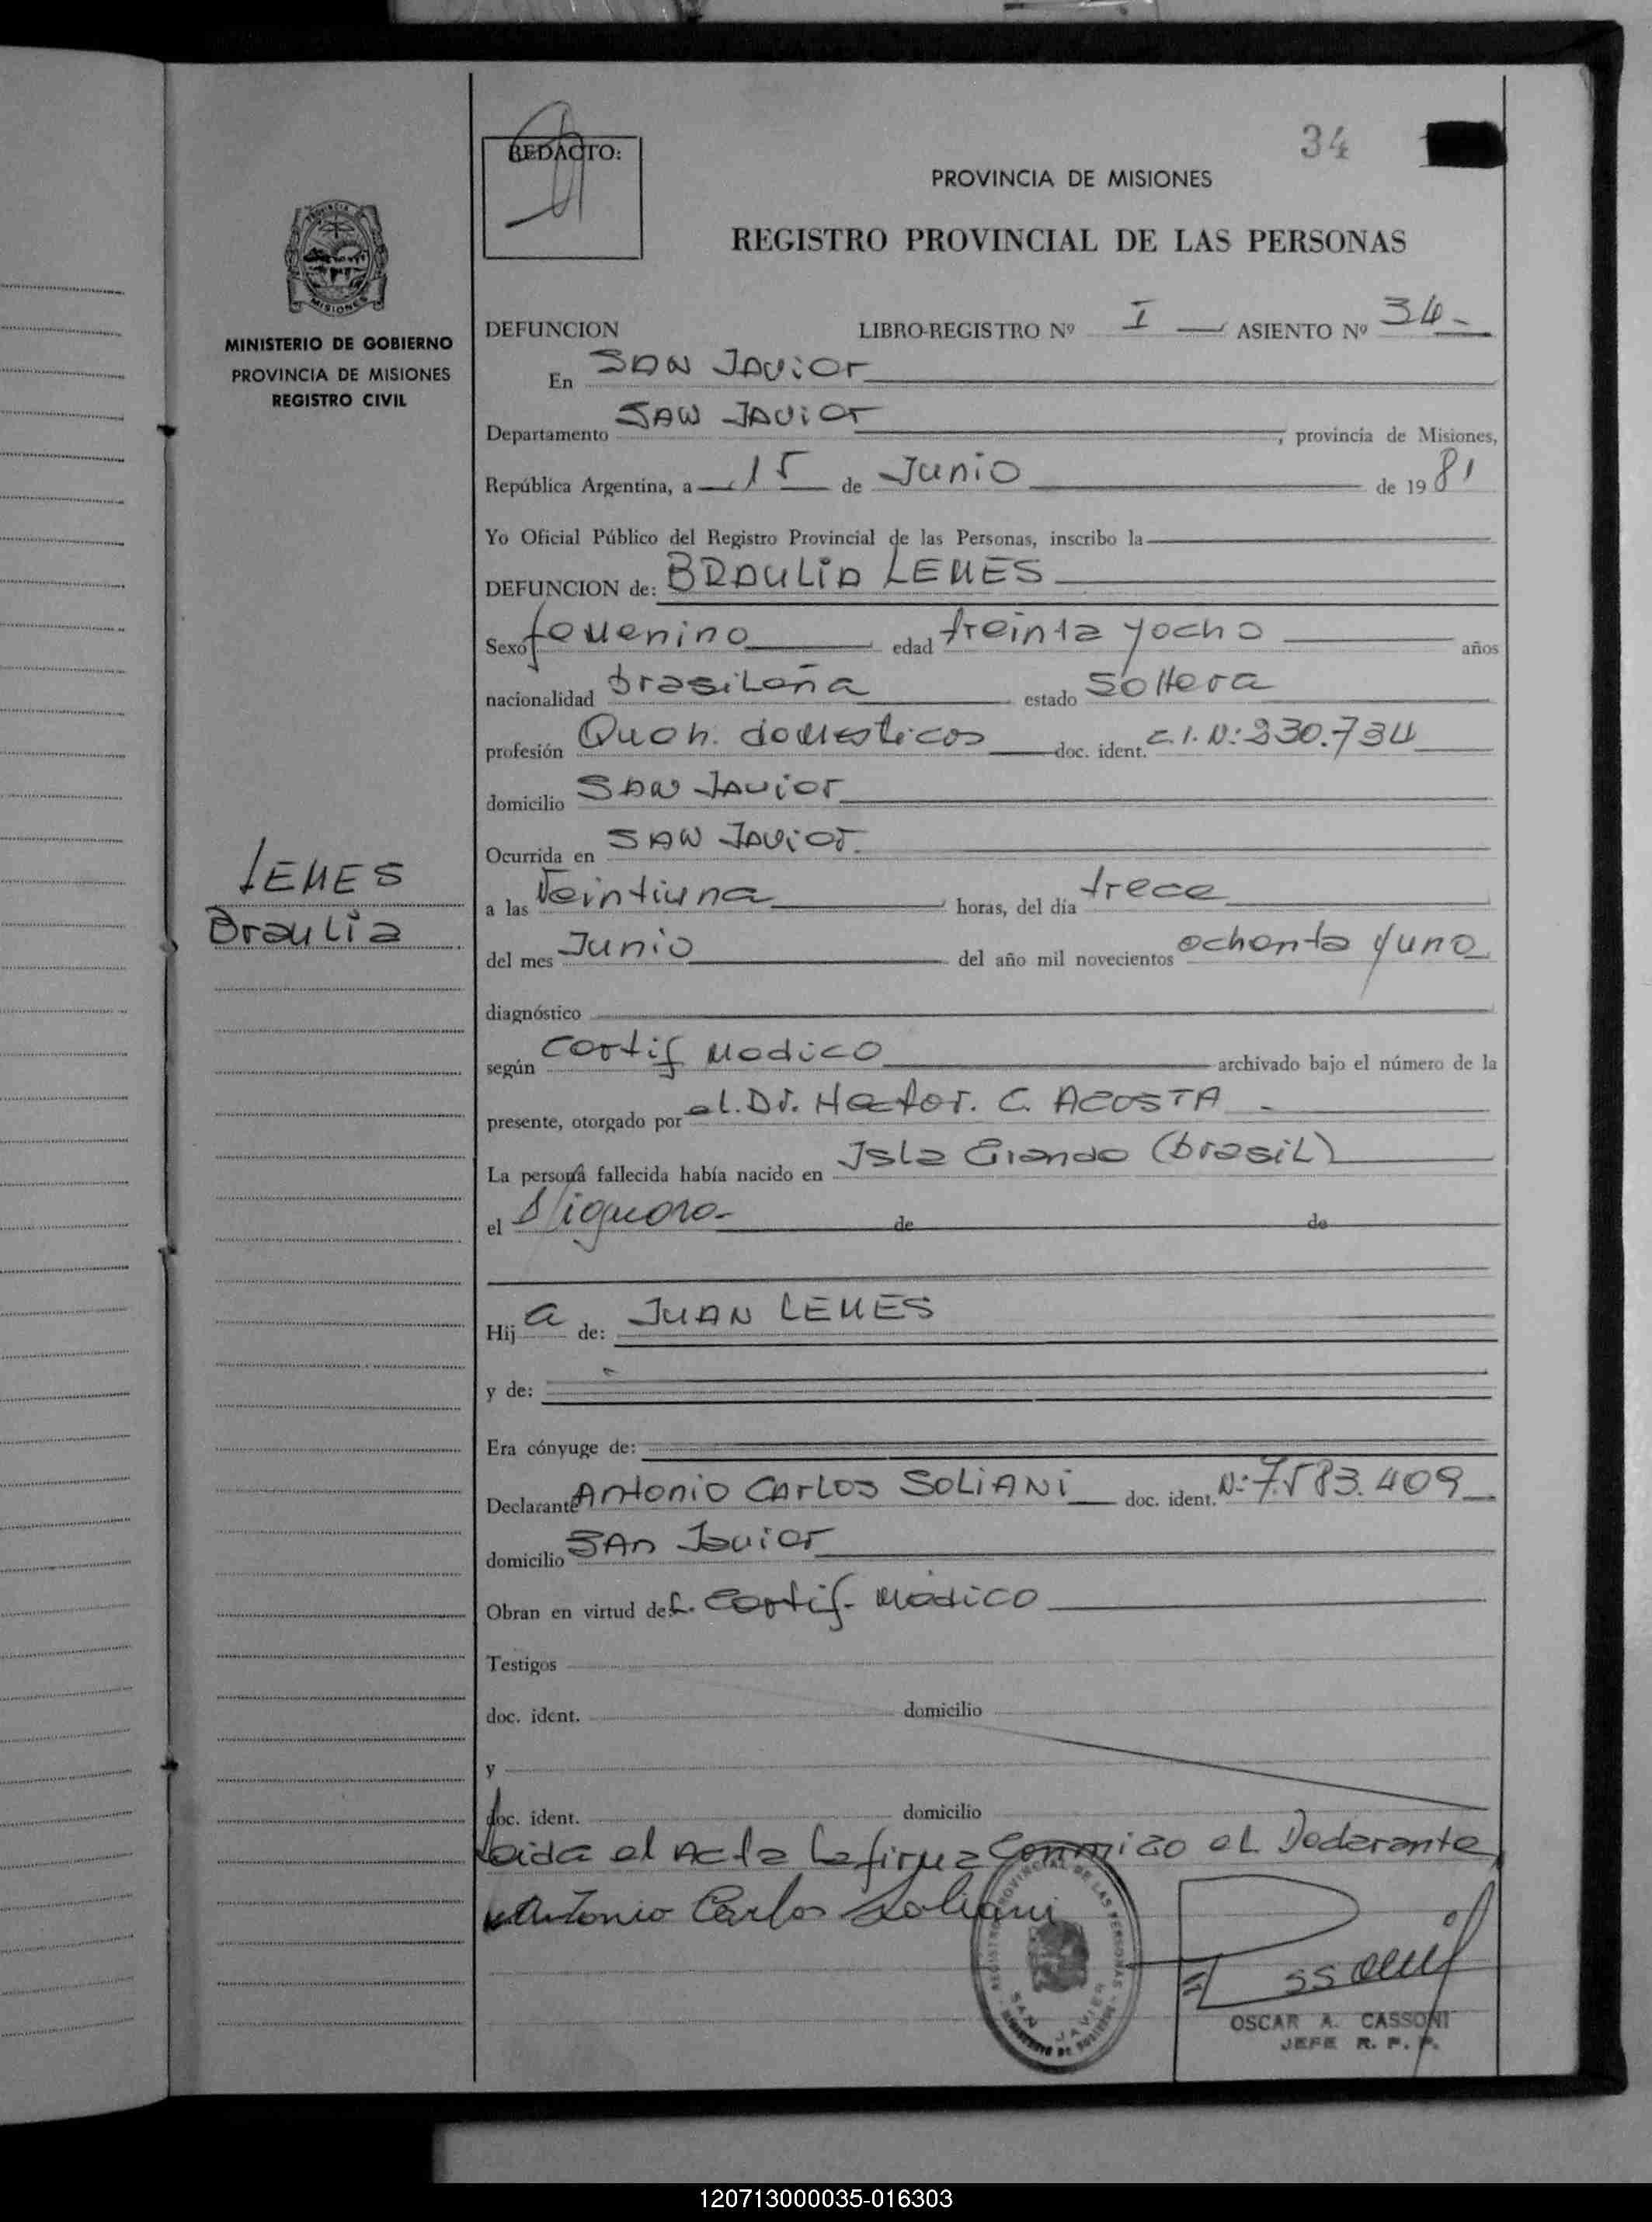 34
REDACTO:
PROVINCIA DE MISIONES
REGISTRO PROVINCIAL DE LAS PERSONAS
PROVINCIA DE
MISIONES
MINISTERIO DE GOBIERNO
PROVINCIA DE MISIONES
REGISTRO CIVIL
LEMES
Braulia
DEFUNCION LIBRO-REGISTRO Nº I ASIENTO Nº 34-
En SAN JAVier
Departamento SAN JAVier, provincia de Misiones,
República Argentina, a 15 de Junio de 1981
Yo Oficial Público del Registro Provincial de las Personas, inscribo la
DEFUNCION de: BRAULIA LEMES
Sexo femenino edad treinta y ocho años
nacionalidad brasileña estado Soltera
profesión Queh. domesticos doc. ident. C.I.N: 230.734
domicilio SAN JAVier
Ocurrida en SAN JAVier.
a las Veintiuna horas, del día trece
del mes Junio del año mil novecientos ochenta y uno
diagnóstico
según Certif Medico archivado bajo el número de la
presente, otorgado por el. Dr. Hector. C. ACOSTA -
La persona fallecida había nacido en Isla Grande (brasil)
el Signora- de de
Hija de: JUAN LEMES
y de:
Era cónyuge de:
Declarante Antonio CArLos SOLIANi doc. ident. N: 7.583.409
domicilio SAn Javier
Obran en virtud del. Certif. Médico
Testigos
doc. ident. domicilio
y
doc. ident. domicilio
Leida el Acta La firma Conmigo el Declarante,
Antonio Carlos Soliani
REGISTRO PROVINCIAL DE LAS PERSONAS
SAN JAVIER
MINISTERIO DE GOBIERNO
OSCAR A. CASSONI
JEFE R. P. P.
120713000035-016303